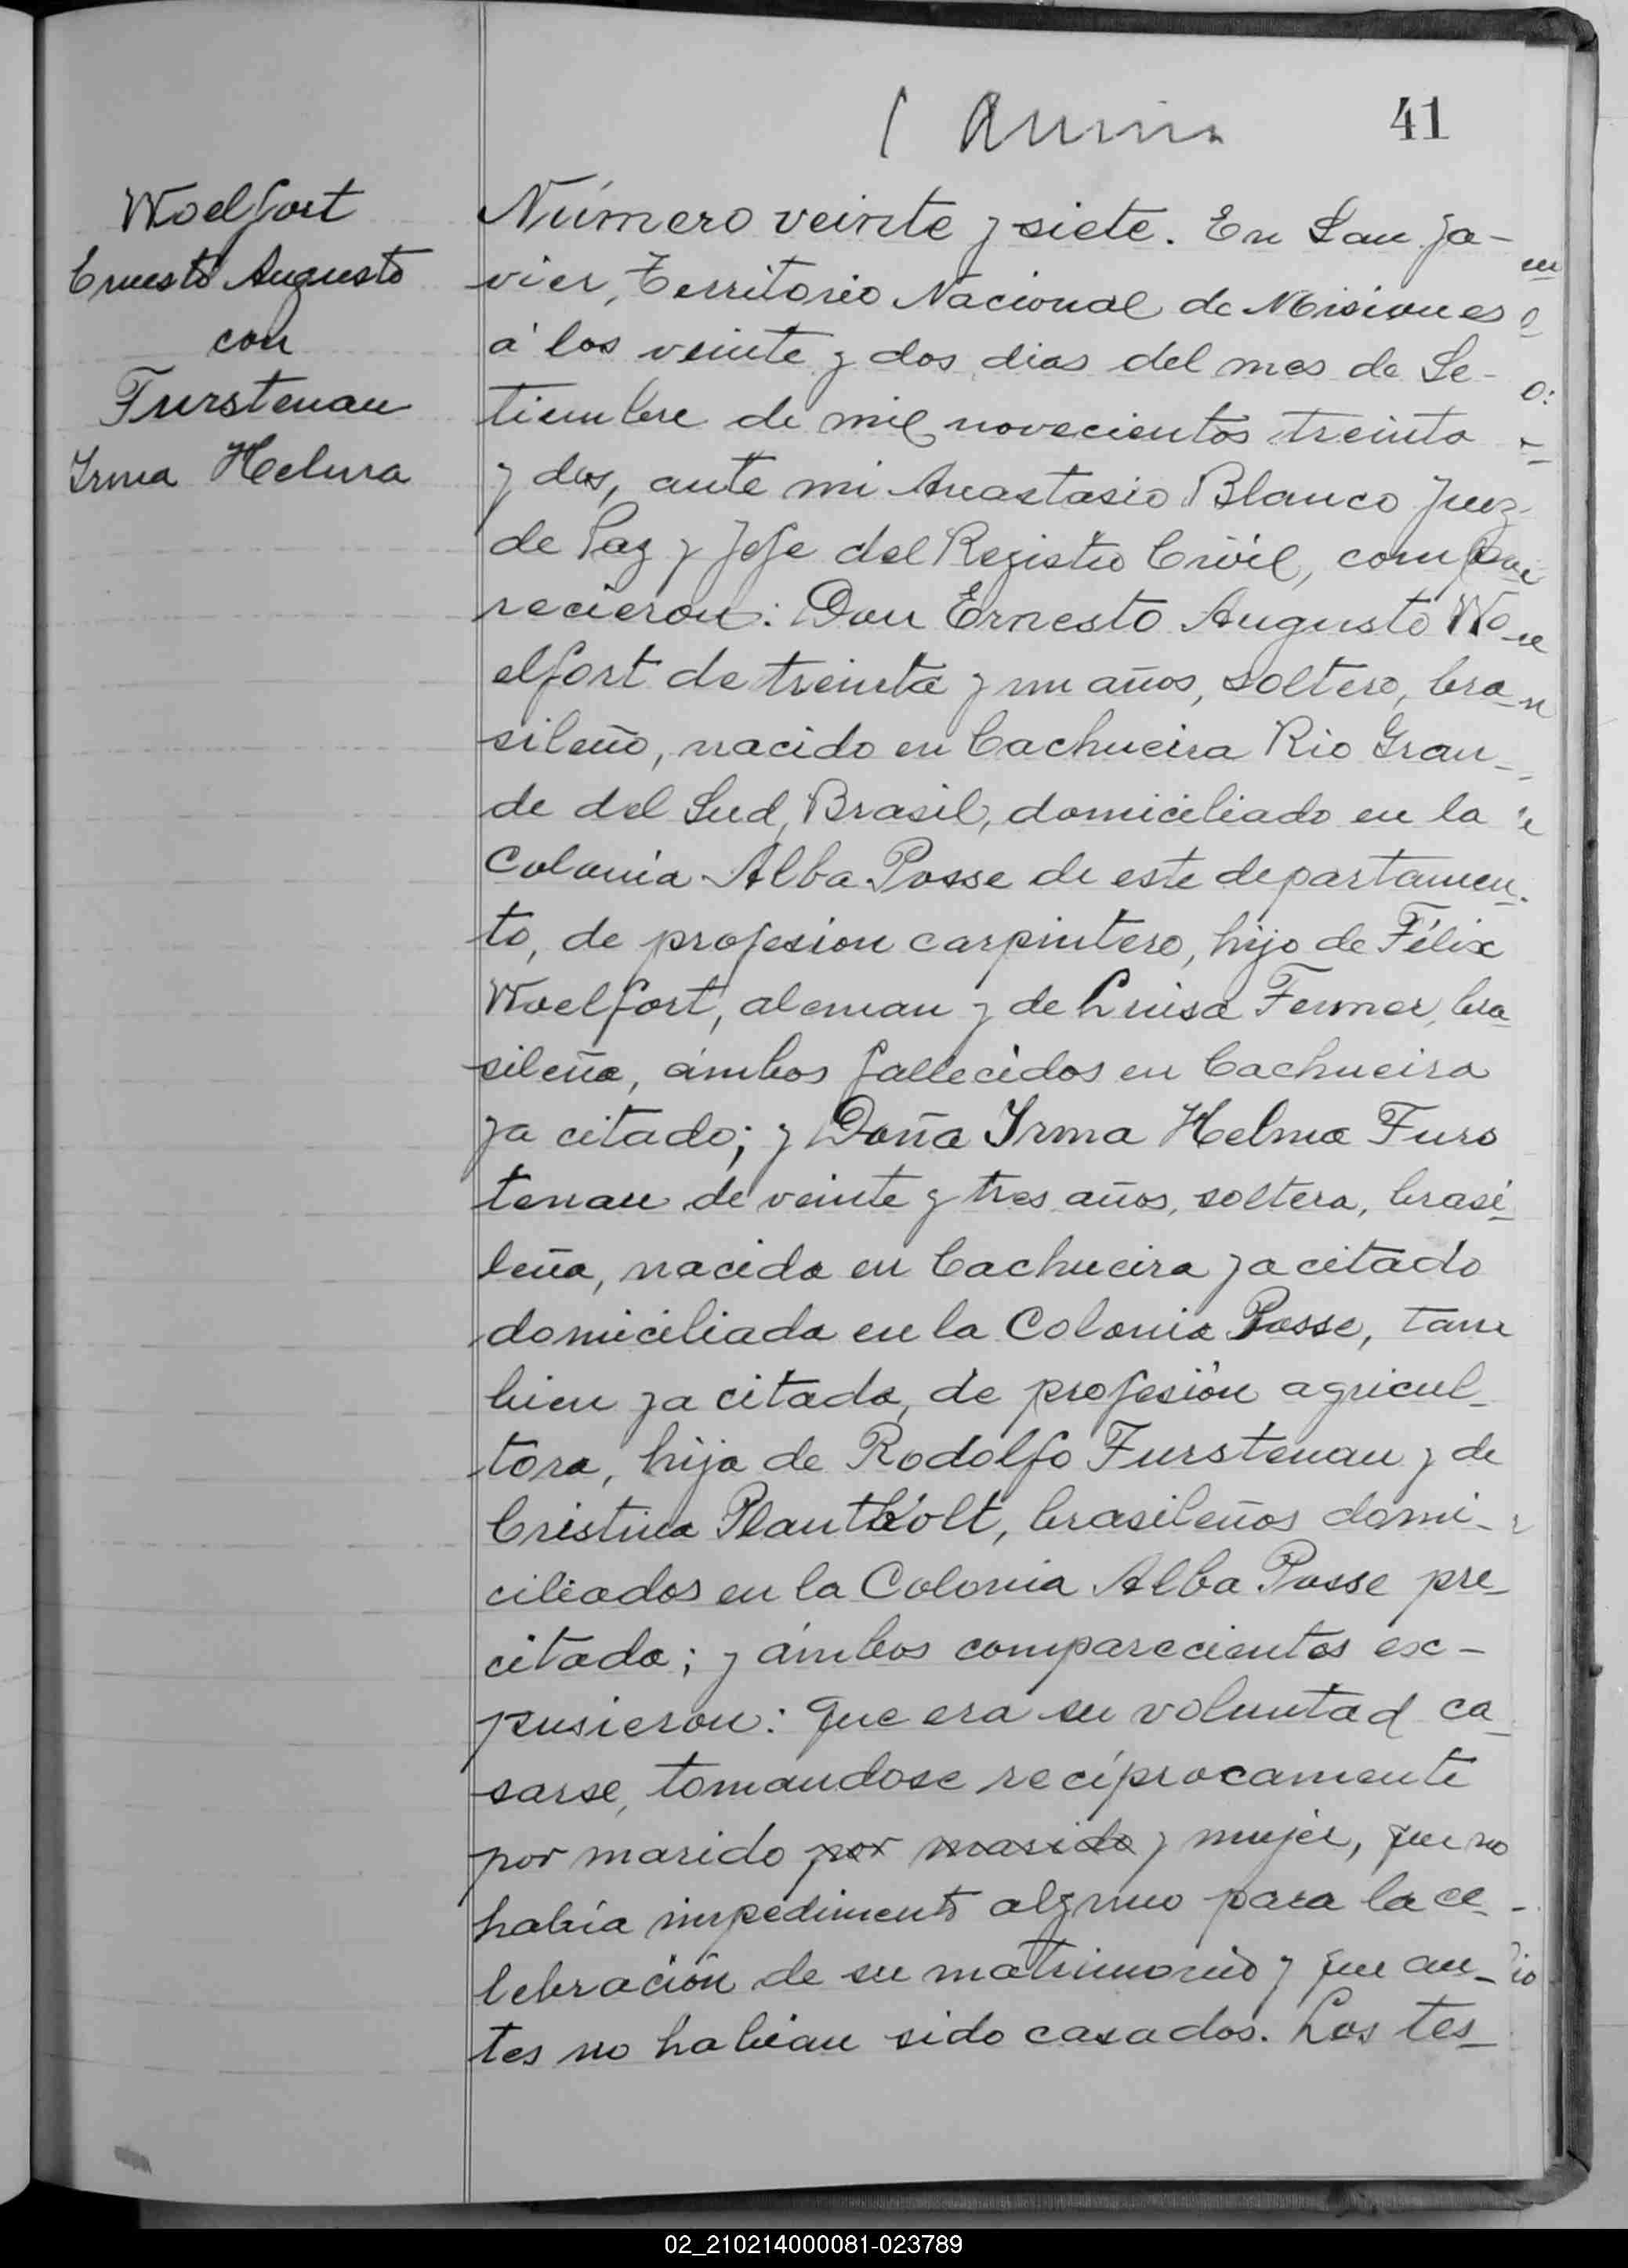 41
Woelfort
Ernesto Augusto
con
Furstenau
Irma Helma
Número veinte y siete. En San Ja-
vier, Territorio Nacional de Misiones
á los veinte y dos dias del mes de Se-
tiembre de mil novecientos treinta
y dos, ante mi Anastasio Blanco Juez
de Paz y Jefe del Registro Civil, compa
recieron: Don Ernesto Augusto Wo
elfort de treinta y un años, soltero, bra
sileño, nacido en Cachueira Rio Gran-
de del Sud, Brasil, domiciliado en la
Colonia Alba Posse de este departamen-
to, de profesion carpintero, hijo de Félix
Woelfort, aleman y de Luisa Fermer, bra
sileña, ámbos fallecidos en Cachueira
ya citado; y Doña Irma Helma Furs
tenau de veinte y tres años, soltera, brasi-
leña, nacida en Cachueira ya citado
domiciliada en la Colonia Posse, tam
bien ya citada, de profesión agricul-
tora, hija de Rodolfo Furstenau y de
Cristina Plantholt, brasileños domi-
ciliados en la Colonia Alba Posse pre-
citada; y ámbos comparecientes ex-
pusieron: Que era su voluntad ca-
sarse, tomandose recíprocamente
por marido por marido y mujer, que no
había impedimento alguno para la ce-
lebración de su matrimonio y que an-
tes no habian sido casados. Los tes-
02_210214000081-023789